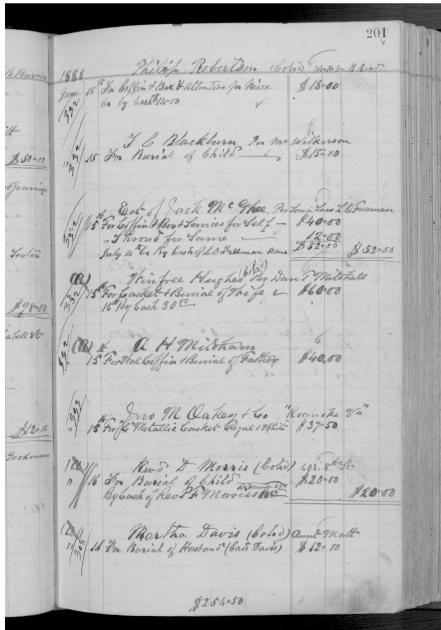 201
1888 Philip Robertson (Colrd)
June 15th For Coffin & Box & Attention for Niece $18.00
Cr by Cash 14.00
J C Blackburn Per Mr Wilkerson
15 For Burial of Child $15.00
Est of Jack McGhee Per Law L D Freeman
15th For Coffin & Box & Services for Self $40.00
" Shroud for Same 12.00
July 14th By Cash of L D Freeman $52.00 $52.00
Winfree Hughes (Colrd) Per Dan T Mitchell
15th For Casket & Burial of Wife $60.00
16th By Cash 30
A H Mitcham
15th For Coffin & Burial of Father $40.00
Jno M Oakey & Co "Roanoke Va"
15th For Metallic Casket White $37.50
Revd D Morris (Colrd) 8th St
16 For Burial of Child $20.00
By Cash of Rev Morriss $20.00
Martha Davis (Colrd) Aunt Matt
16 For Burial of Husband (Davis) $12.00
$254.50
$50.00
$98.00
$12.00